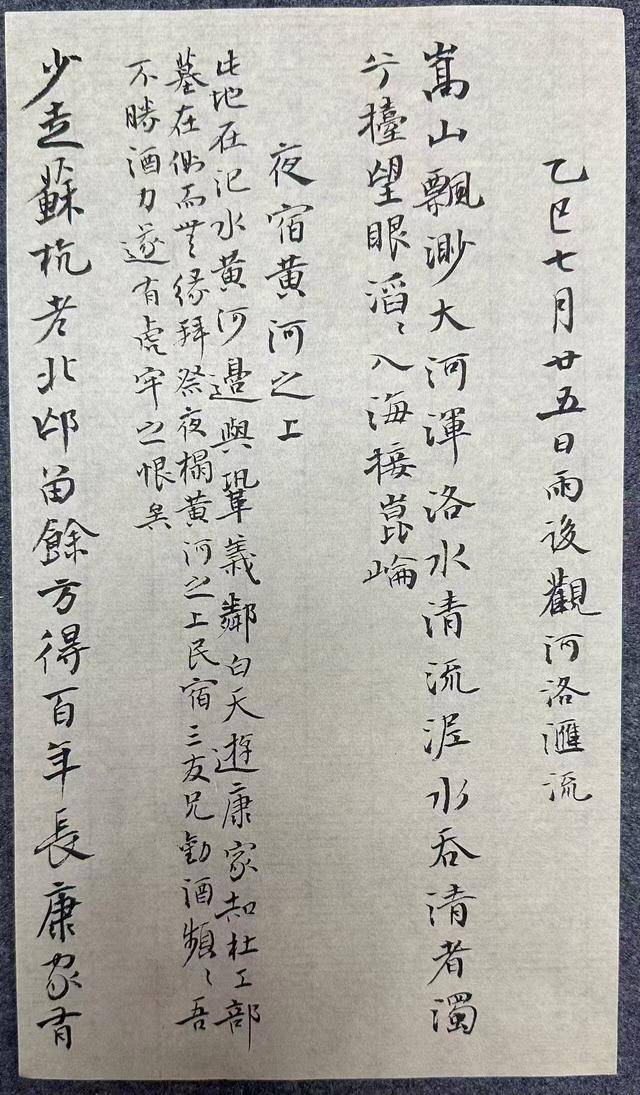 乙巳七月廿五日雨後觀河洛滙流
嵩山飄渺大河渾洛水清流泥水吞清者濁
兮擡望眼滔〻入海接崑崙
夜宿黄河之上
此地在汜水黄河邉與鞏義鄰白天遊康家知杜工部
墓在側而無缘拜祭夜榻黄河之上民宿三友兄勸酒頻〻吾
不勝酒力遂有虎牢之恨矣
少走蘇杭老北邙留餘方得百年長康家有